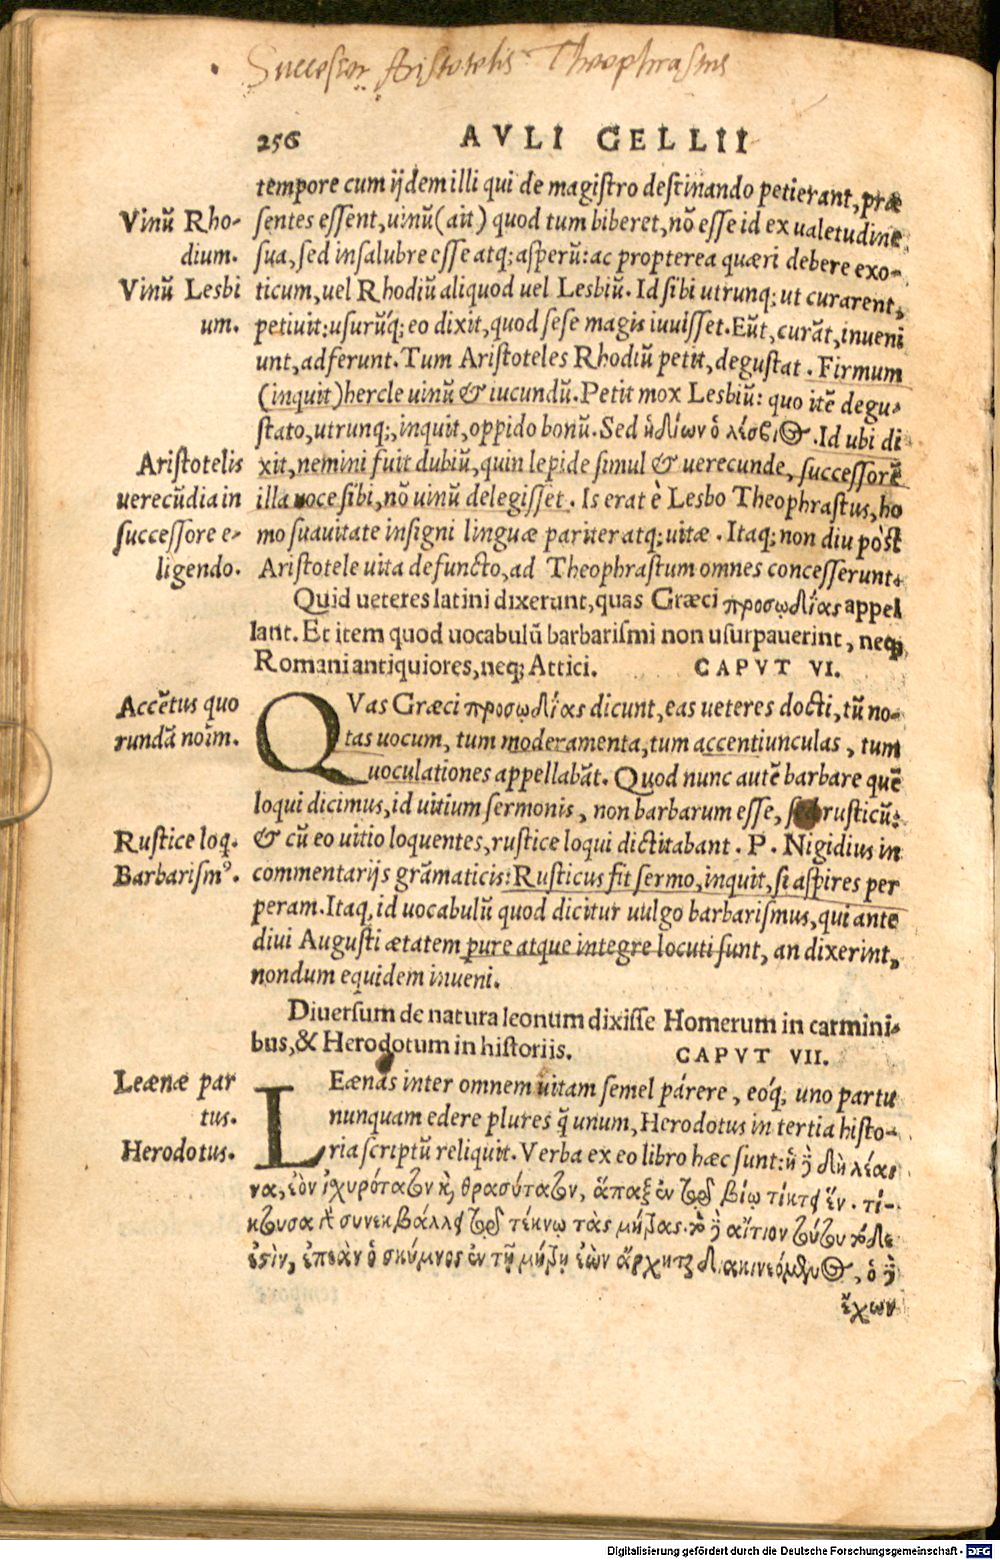 Successor Aristotelis Theophrastus
256 AVLI GELLII
tempore cum ijdem illi qui de magistro destinando petierant, præ
Vinũ Rho- sentes essent, uinũ (ait) quod tum biberet, nõ esse id ex ualetudine
dium. sua, sed insalubre esse atq; asperũ: ac propterea quæri debere exo-
Vinũ Lesbi ticum, uel Rhodiũ aliquod uel Lesbiũ. Id sibi utrunq; ut curarent,
um. petiuit: usurũq́; eo dixit, quod sese magis iuuisset. Eũt, curãt, inueni
unt, adferunt. Tum Aristoteles Rhodiũ petit, degustat. Firmum
(inquit) hercle uinũ & iucundũ. Petit mox Lesbiũ: quo itẽ degu-
stato, utrunq;, inquit, oppido bonũ. Sed ἡδίων ὁ λέσβιος. Id ubi di
Aristotelis xit, nemini fuit dubiũ, quin lepide simul & uerecunde, successorẽ
uerecũdia in illa uoce sibi, nõ uinũ delegisset. Is erat è Lesbo Theophrastus, ho
successore e- mo suauitate insigni linguæ pariter atq; uitæ. Itaq; non diu pòst
ligendo. Aristotele uita defuncto, ad Theophrastum omnes concesserunt.
Quid ueteres latini dixerunt, quas Græci προσῳδίας appel
lant. Et item quod uocabulũ barbarismi non usurpauerint, neq;
Romani antiquiores, neq; Attici. CAPVT VI.
Accẽtus quo QVas Græci προσῳδίας dicunt, eas ueteres docti, tũ no-
rundã noĩm. tas uocum, tum moderamenta, tum accentiunculas, tum
uoculationes appellabãt. Quod nunc autẽ barbare quẽ
loqui dicimus, id uitium sermonis, non barbarum esse, sed rusticũ:
Rustice loq. & cũ eo uitio loquentes, rustice loqui dictitabant. P. Nigidius in
Barbarism⁹. commentarijs grãmaticis: Rusticus fit sermo, inquit, si aspires per
peram. Itaq; id uocabulũ quod dicitur uulgo barbarismus, qui ante
diui Augusti ætatem pure atque integre locuti sunt, an dixerint,
nondum equidem inueni.
Diuersum de natura leonum dixisse Homerum in carmini-
bus, & Herodotum in historijs. CAPVT VII.
Leænæ par LEænas inter omnem uitam semel párere, eóq́; uno partu
tus. nunquam edere plures q̃ unum, Herodotus in tertia histo-
Herodotus. ria scriptũ reliquit. Verba ex eo libro hæc sunt: ἡ δὲ δὴ λέαι
να, ἐὸν ἰχυρότατον κỳ θρασύτατον, ἅπαξ ἐν τῷ βίῳ τίκτει ἕν. τί-
κτουσα γὰρ συνεκβάλλει τῷ τέκνῳ τὰς μήτρας. τὸ δὲ αἴτιον τούτου τόδε
ἐστὶν, ἐπεὰν ὁ σκύμνος ἐν τῇ μήτρῃ ἐὼν ἄρχηται διακινεόμενος, ὁ δὲ
ἔχων